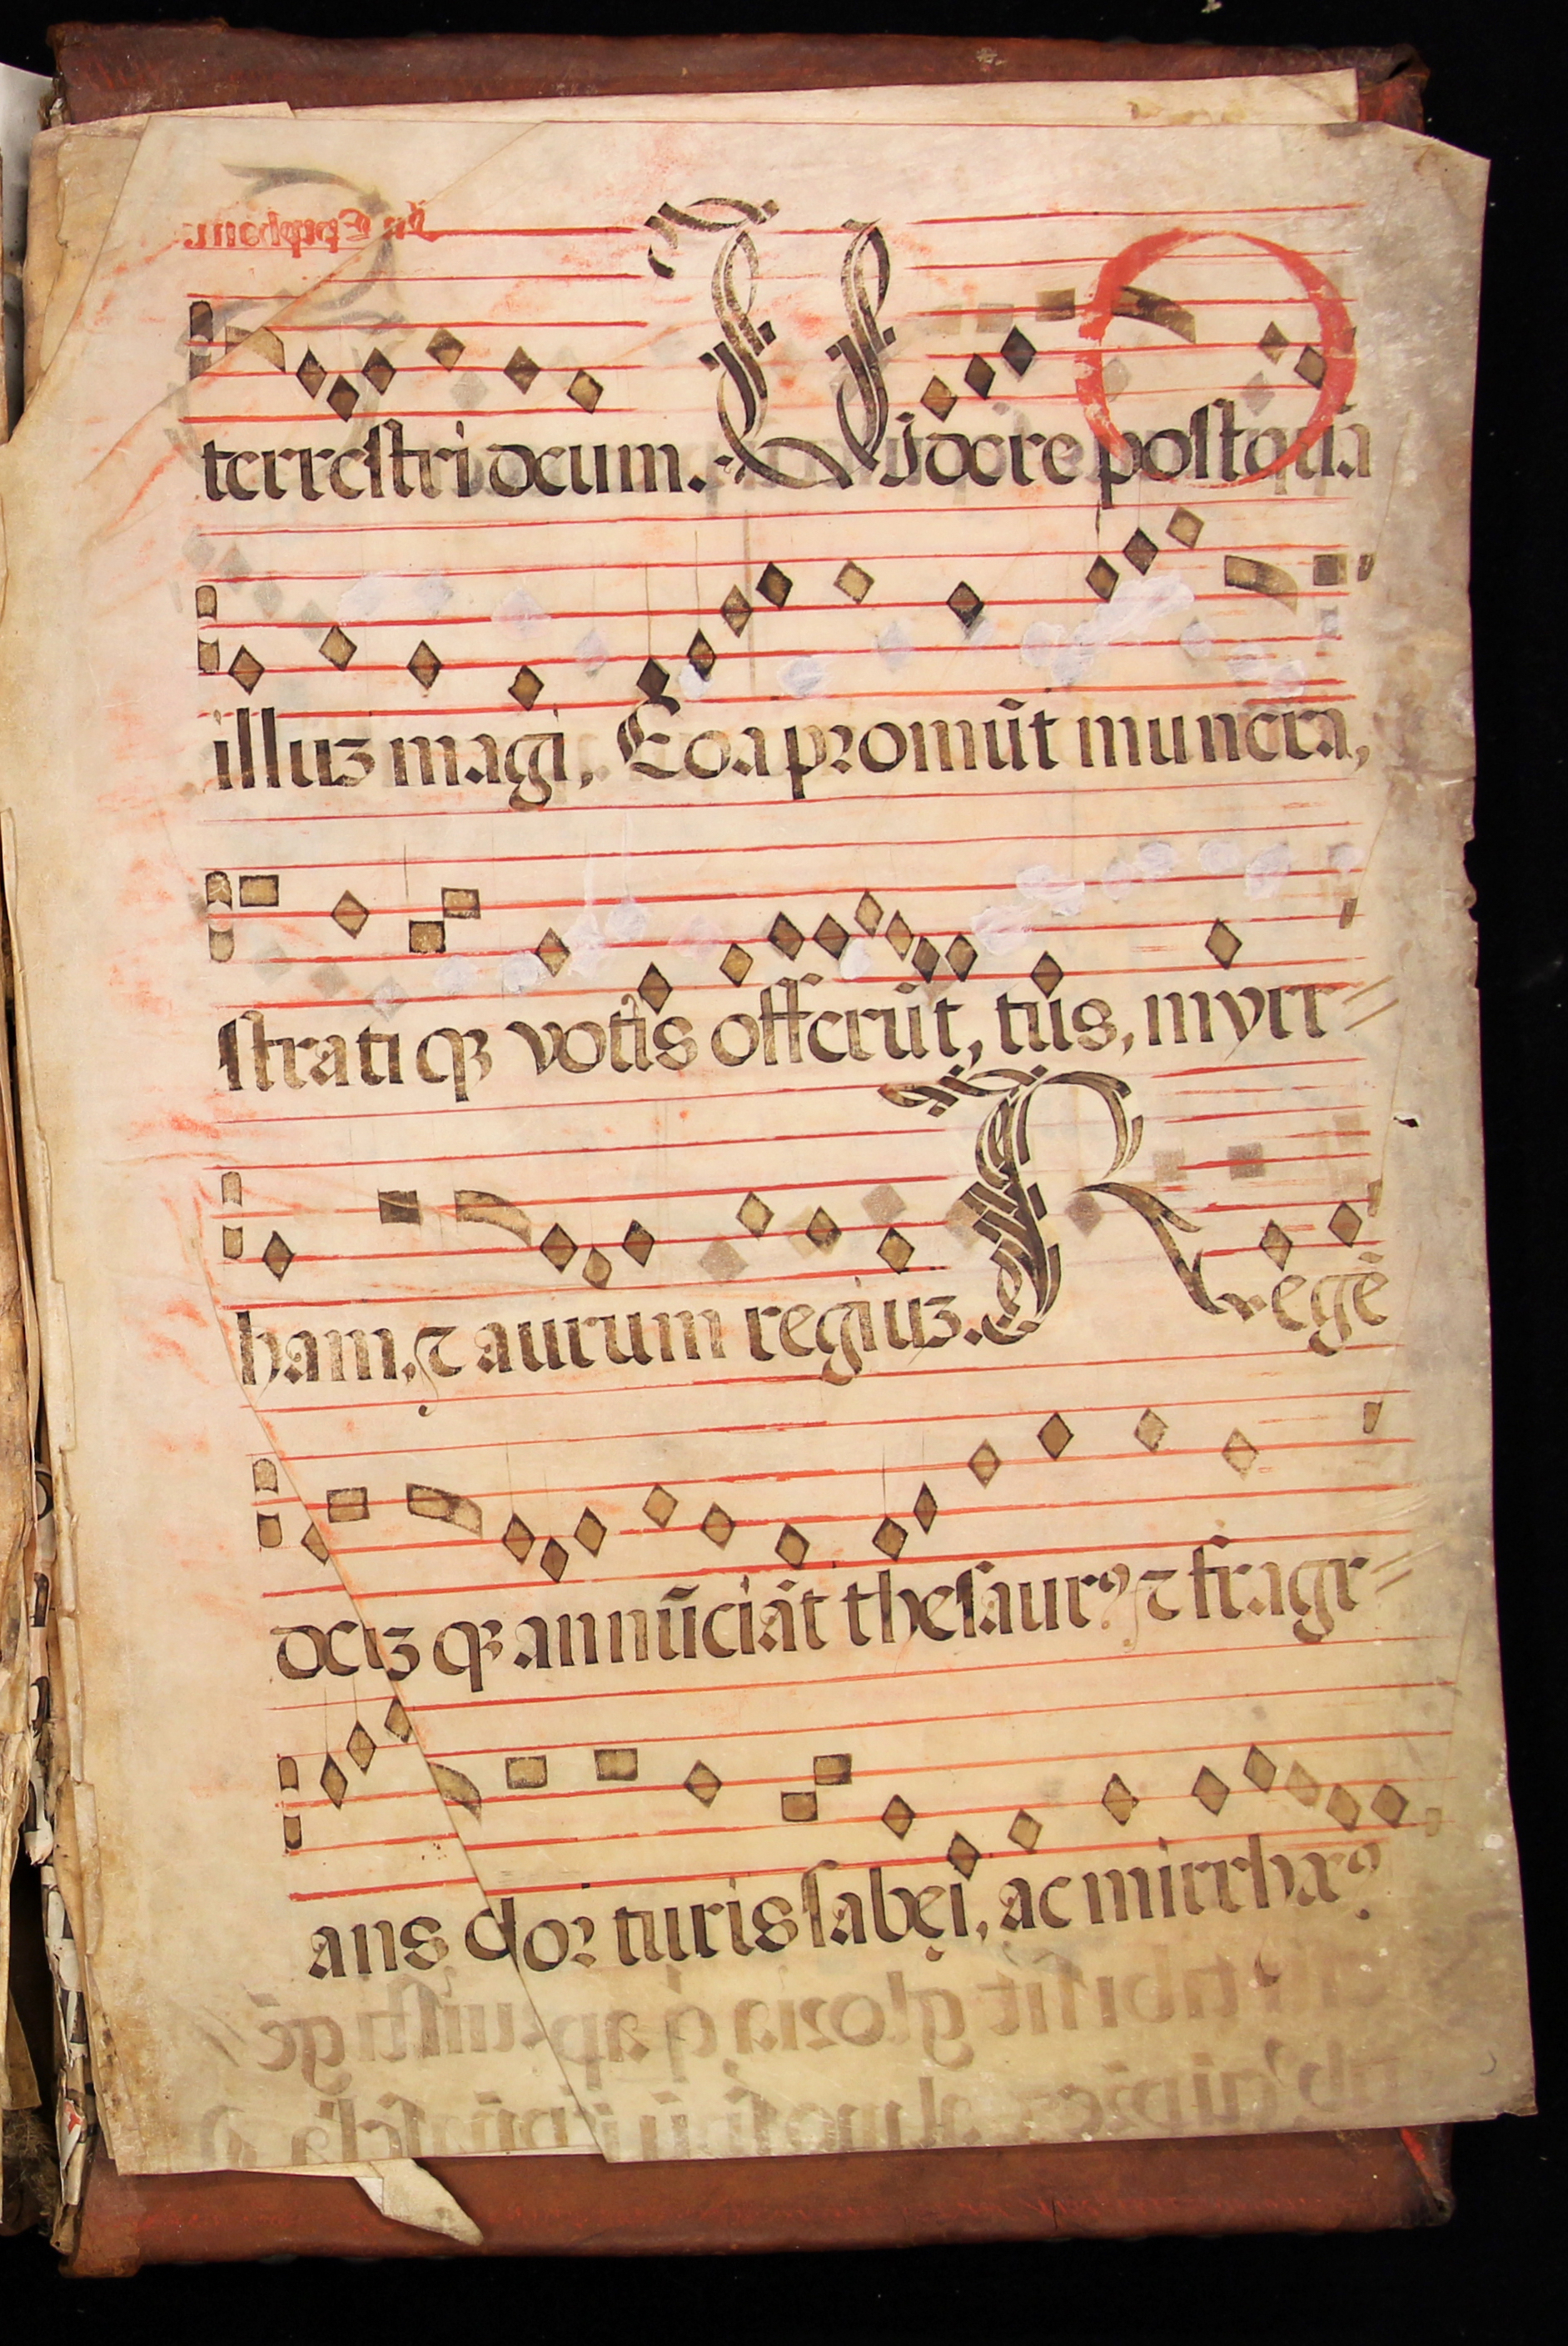 terrestri deum. Videre postquã
illuz magi, Eoa promũt munera,
strati qꝫ votis offerũt, tus, myrr
ham, ꞇ aurum regiuz. Regẽ
deuz qꝫ annũciãt thesaurꝰ, ꞇ fragr
ans odor turis sabęi, ac mirrhaꝰ